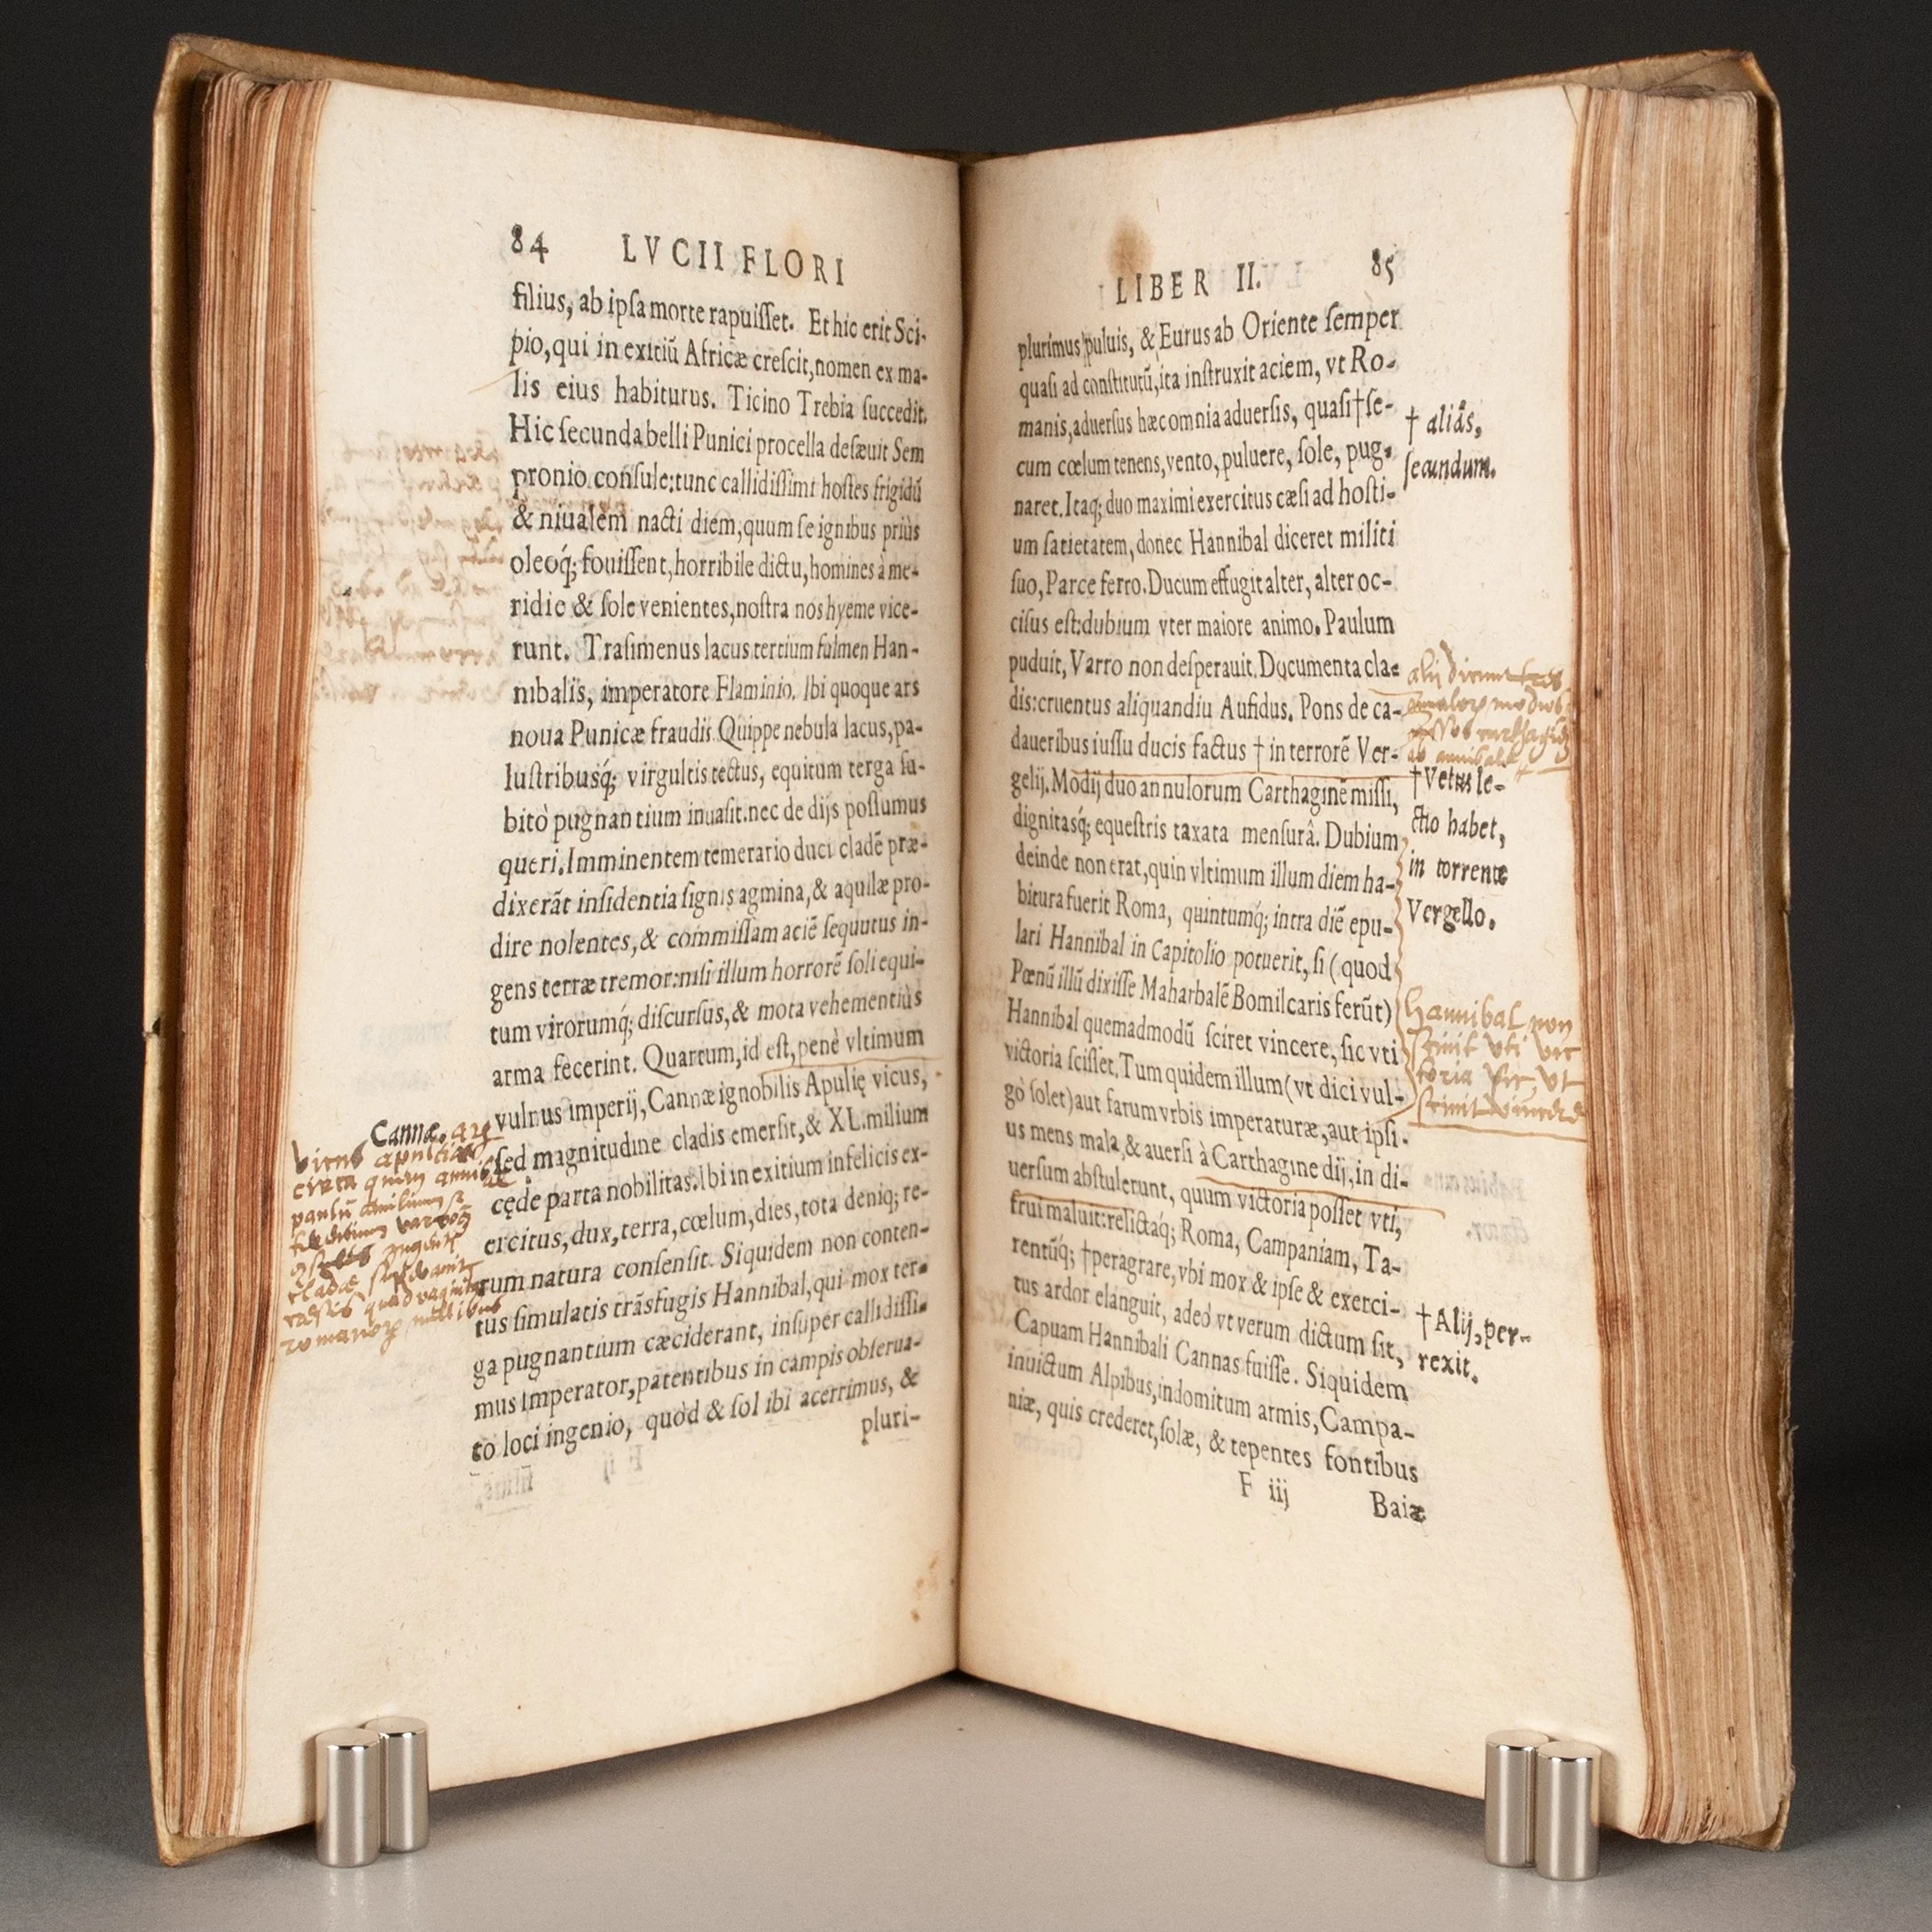 84 LVCII FLORI
filius, ab ipſa morte rapuiſſet. Et hic erit Sci-
pio, qui in exitiũ Africæ creſcit, nomen ex ma-
lis eius habiturus. Ticino Trebia ſuccedit.
Hic ſecunda belli Punici procella deſæuit Sem
pronio conſule: tunc callidiſſimi hoſtes frigidũ
& niualem nacti diem, quum ſe ignibus priùs
oleoq́; fouiſſent, horribile dictu, homines à me-
ridie & ſole venientes, noſtra nos hyeme vice-
runt. Traſimenus lacus tertium fulmen Han-
nibalis, imperatore Flaminio. Ibi quoque ars
noua Punicæ fraudis. Quippe nebula lacus, pa-
luſtribusq́; virgultis tectus, equitum terga ſu-
bitò pugnantium inuaſit. nec de dijs poſſumus
queri. Imminentem temerario duci cladẽ præ-
dixerãt inſidentia ſignis agmina, & aquilæ pro-
dire nolentes, & commiſſam aciẽ ſequutus in-
gens terræ tremor: niſi illum horrorẽ ſoli equi-
tum virorumq́; diſcurſus, & mota vehementiùs
arma fecerint. Quartum, id eſt, penè vltimum
vulnus imperij, Cannæ ignobilis Apulię vicus,
ſed magnitudine cladis emerſit, & XL. milium
cęde parta nobilitas. Ibi in exitium infelicis ex-
ercitus, dux, terra, cœlum, dies, tota deniq; re-
rum natura conſenſit. Siquidem non conten-
tus ſimulatis trãsfugis Hannibal, qui mox ter-
ga pugnantium cæciderant, inſuper callidiſſi-
mus imperator, patentibus in campis obſerua-
to loci ingenio, quòd & ſol ibi acerrimus, &
pluri-
Cannæ.
vicus apuliæ
circa quem
romanorum millibus
LIBER II. 85
plurimus puluis, & Eurus ab Oriente ſemper
quaſi ad conſtitutũ, ita inſtruxit aciem, vt Ro-
manis, aduerſus hæc omnia aduerſis, quaſi † ſe-
cum cœlum tenens, vento, puluere, ſole, pug-
naret. Itaq; duo maximi exercitus cæſi ad hoſti-
um ſatietatem, donec Hannibal diceret militi
ſuo, Parce ferro. Ducum effugit alter, alter oc-
ciſus eſt: dubium vter maiore animo. Paulum
puduit, Varro non deſperauit. Documenta cla-
dis: cruentus aliquandiu Aufidus. Pons de ca-
daueribus iuſſu ducis factus † in terrorẽ Ver-
gelij. Modij duo annulorum Carthaginẽ miſſi,
dignitasq́; equeſtris taxata menſurâ. Dubium
deinde non erat, quin vltimum illum diem ha-
bitura fuerit Roma, quintumq́; intra diẽ epu-
lari Hannibal in Capitolio potuerit, ſi (quod
Pœnũ illũ dixiſſe Maharbalẽ Bomilcaris ferũt)
Hannibal quemadmodũ ſciret vincere, ſic vti
victoria ſciſſet. Tum quidem illum (vt dici vul-
gò ſolet) aut fatum vrbis imperaturæ, aut ipſi-
us mens mala, & auerſi à Carthagine dij, in di-
uerſum abſtulerunt, quum victoria poſſet vti,
frui maluit: relictaq́; Roma, Campaniam, Ta-
rentũq́; † peragrare, vbi mox & ipſe & exerci-
tus ardor elanguit, adeò vt verum dictum ſit,
Capuam Hannibali Cannas fuiſſe. Siquidem
inuictum Alpibus, indomitum armis, Campa-
niæ, quis crederet, ſolæ, & tepentes fontibus
F iij Baiæ
† aliâs,
ſecundum.
alij dicunt
† Vetus le-
ctio habet,
in torrente
Vergello.
hannibal non
ſcivit vti vic
toria ſic, vt
ſcivit
† Alij, per-
rexit.